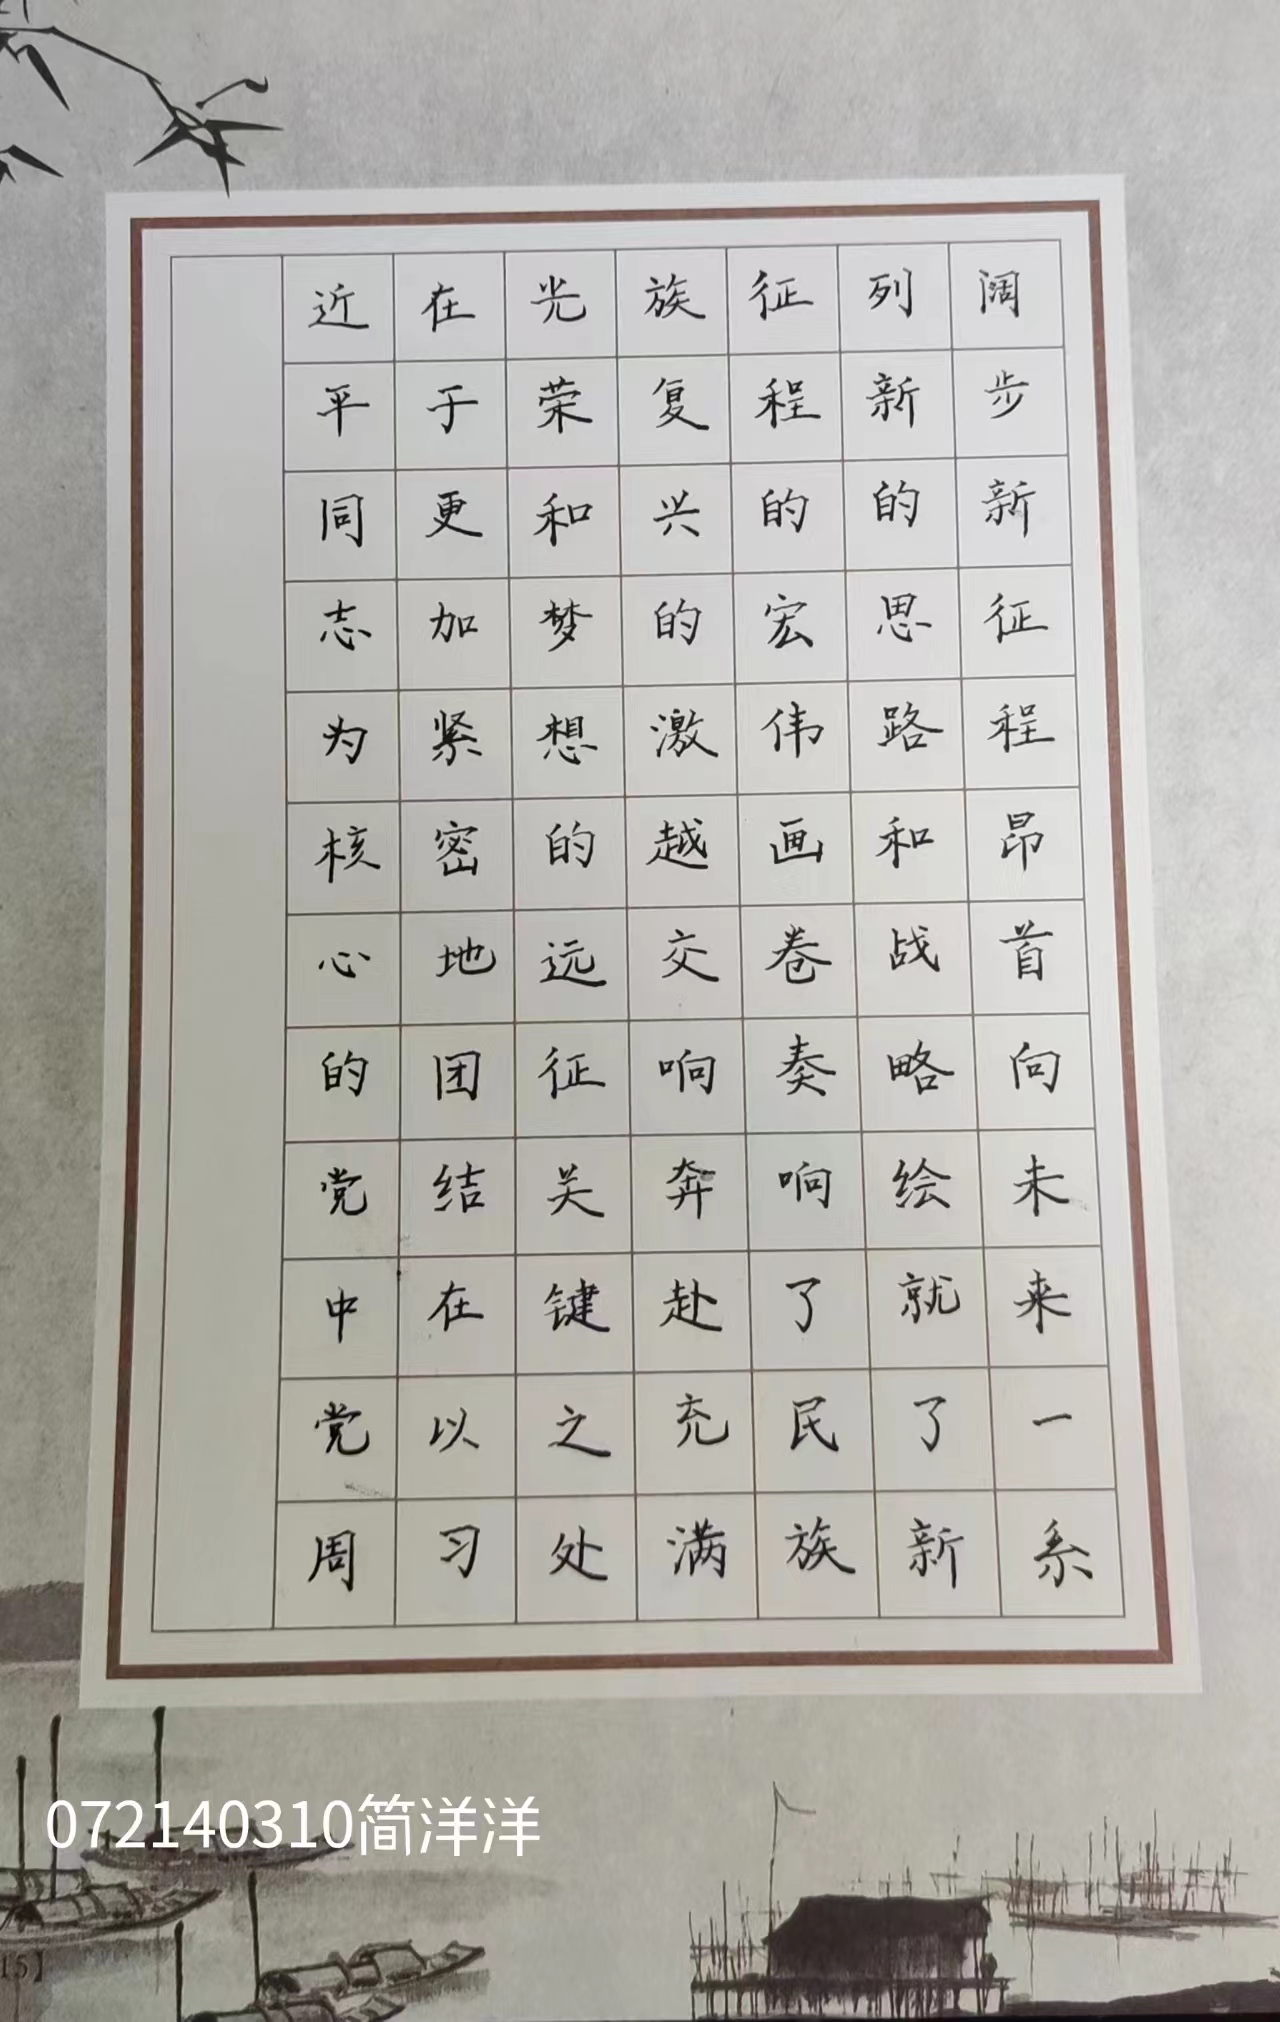 阔步新征程昂首向未来一系
列新的思路和战略绘就了新
征程的宏伟画卷奏响了民族
族复兴的激越交响奔赴充满
光荣和梦想的远征关键之处
在于更加紧密地团结在以习
近平同志为核心的党中党周
072140310简洋洋
15】